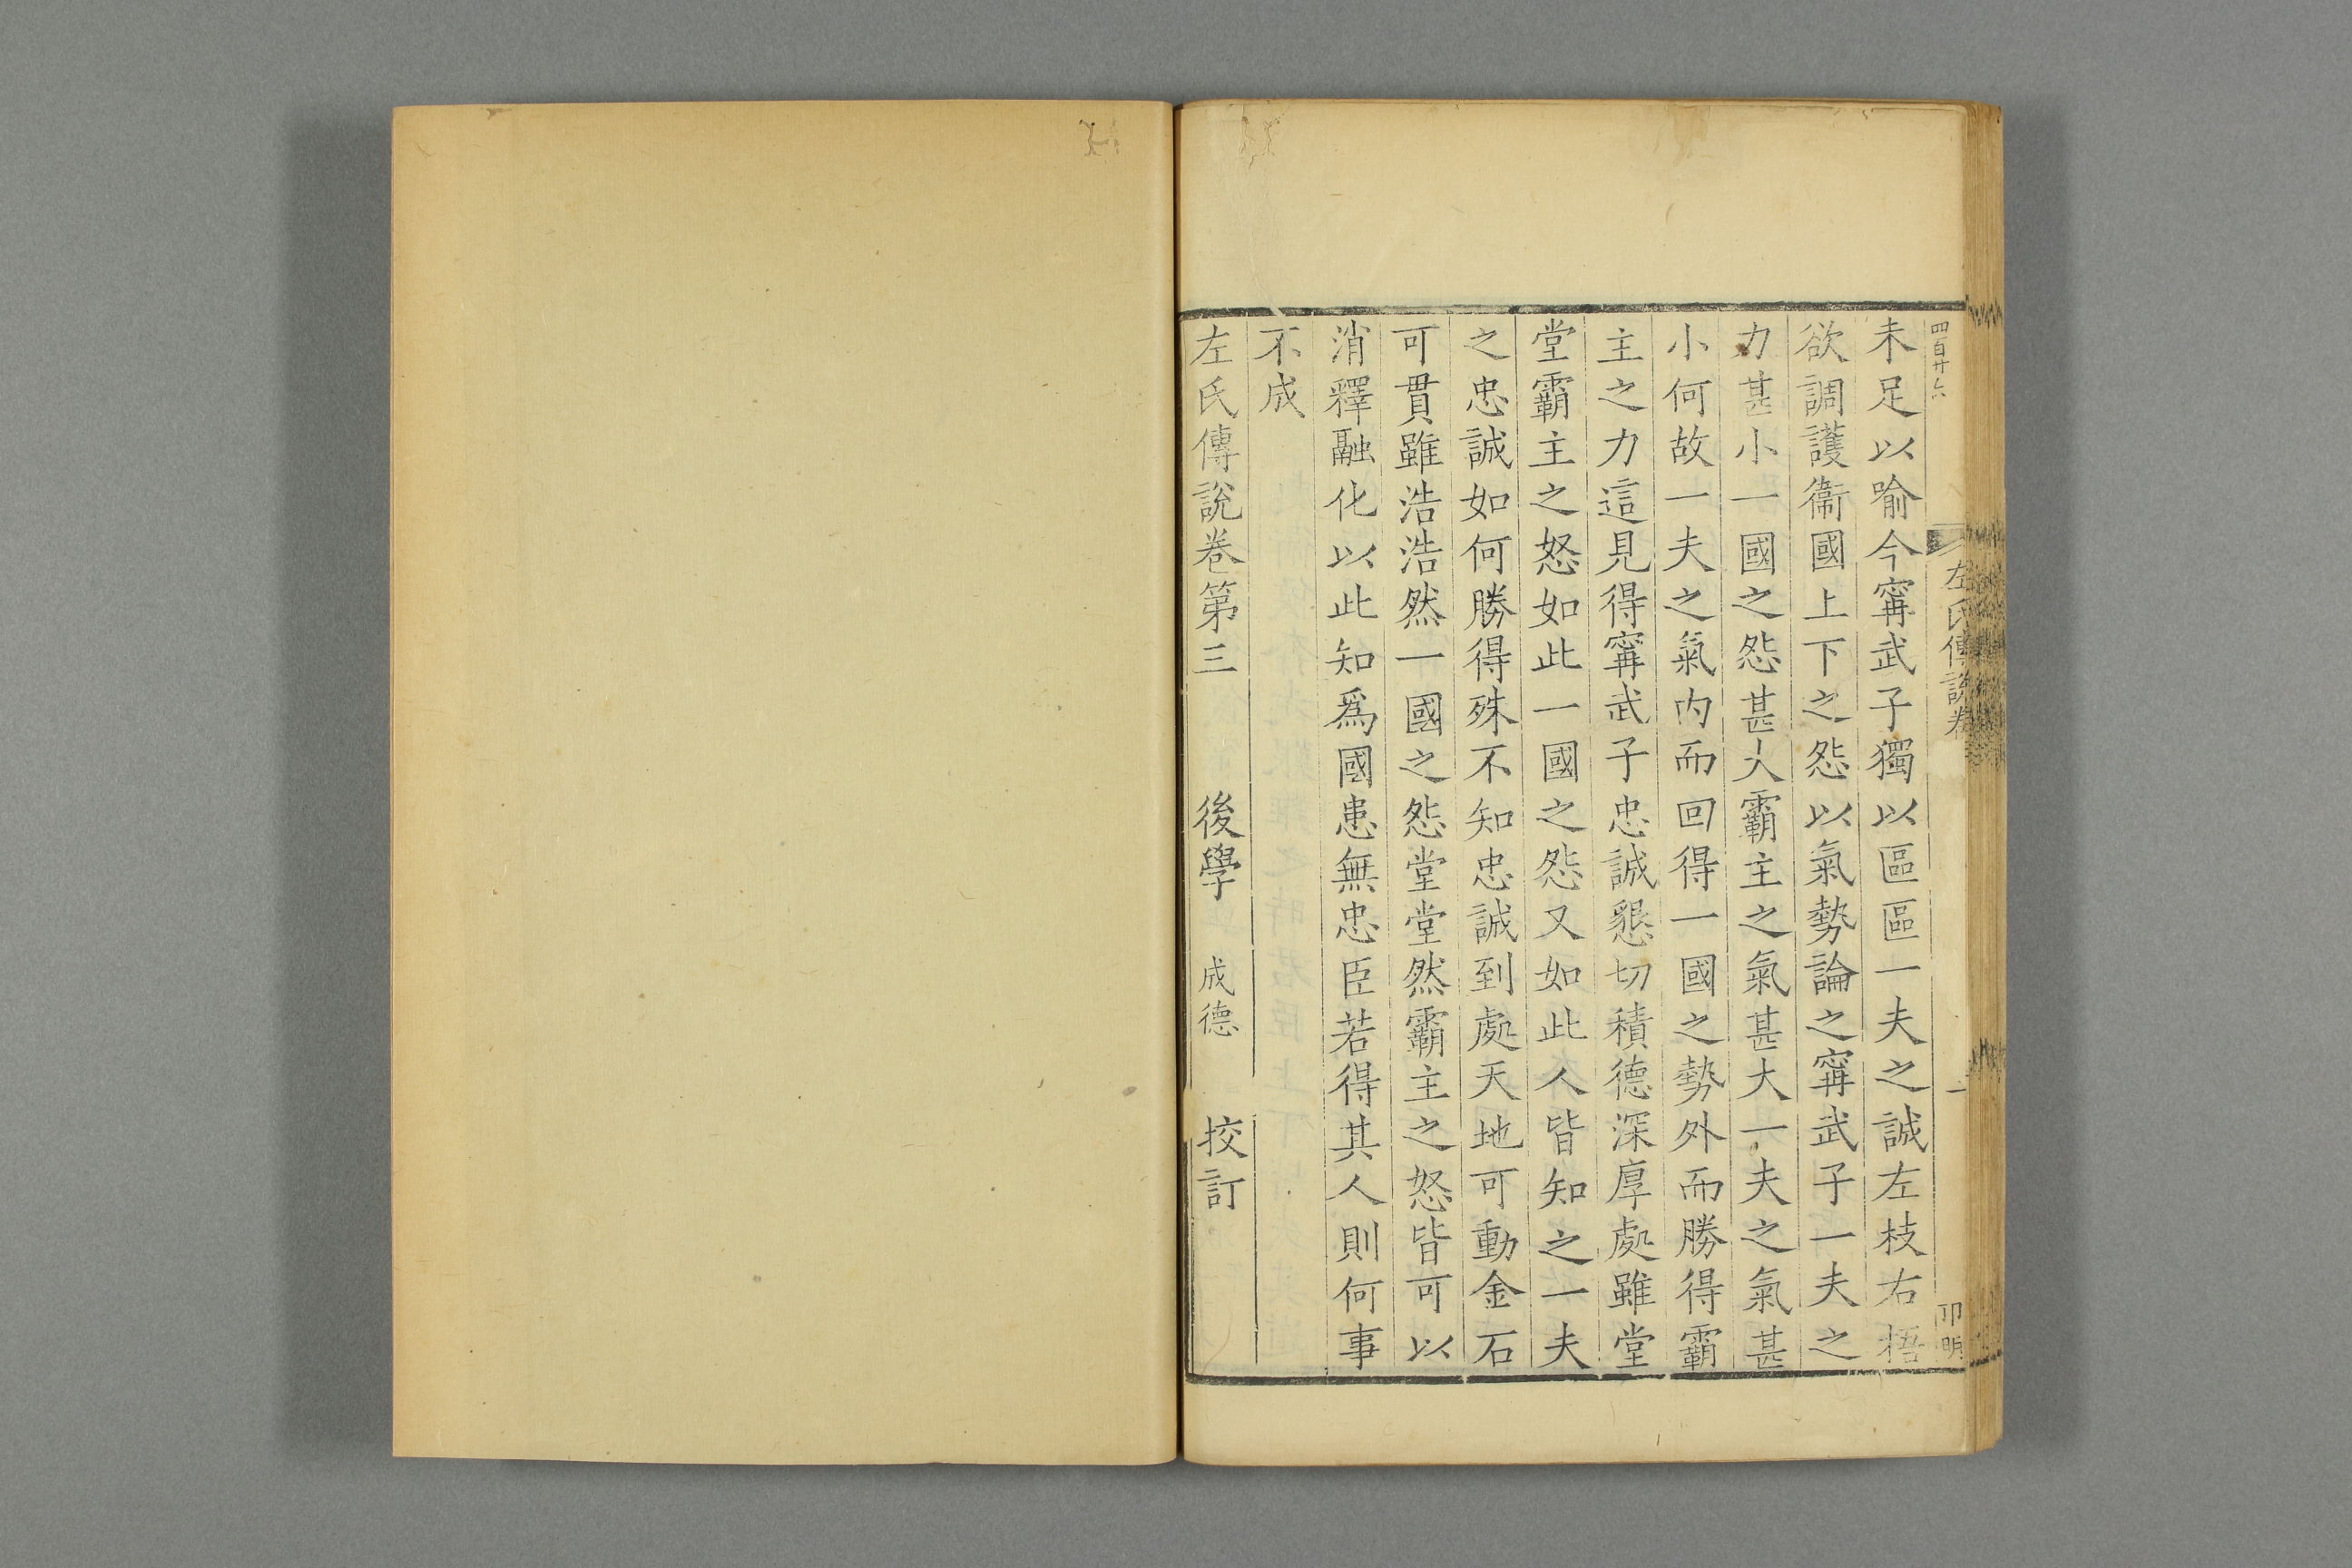 四百廿六
左氏傳說卷
未足以喻今寗武子獨以區區一夫之誠左枝右梧
欲調護衞國上下之怨以氣勢論之寗武子一夫之
力甚小一國之怨甚大霸主之氣甚大一夫之氣甚
小何故一夫之氣內而回得一國之勢外而勝得霸
主之力這見得寗武子忠誠懇切積德深厚處雖堂
堂霸主之怒如此一國之怨又如此人皆知之一夫
之忠誠如何勝得殊不知忠誠到處天地可動金石
可貫雖浩浩然一國之怨堂堂然霸主之怒皆可以
消釋融化以此知爲國患無忠臣若得其人則何事
不成
左氏傳說卷第三 後學 成德 挍訂